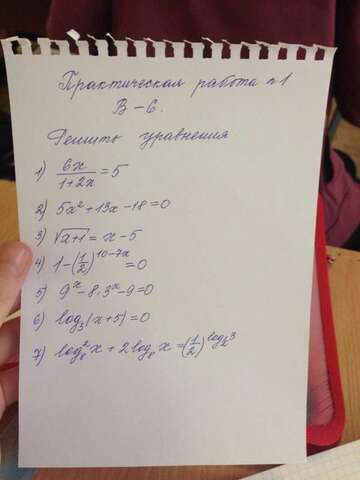 Практическая работа №1
В-6.
Решить уравнения
1) 6x/(1+2x) = 5
2) 5x² + 13x - 18 = 0
3) √(x+1) = x - 5
4) 1 - (1/2)^(10-7x) = 0
5) 9^x - 8·3^x - 9 = 0
6) log₃(x+5) = 0
7) log₈²x + 2log₈x = (1/2)^